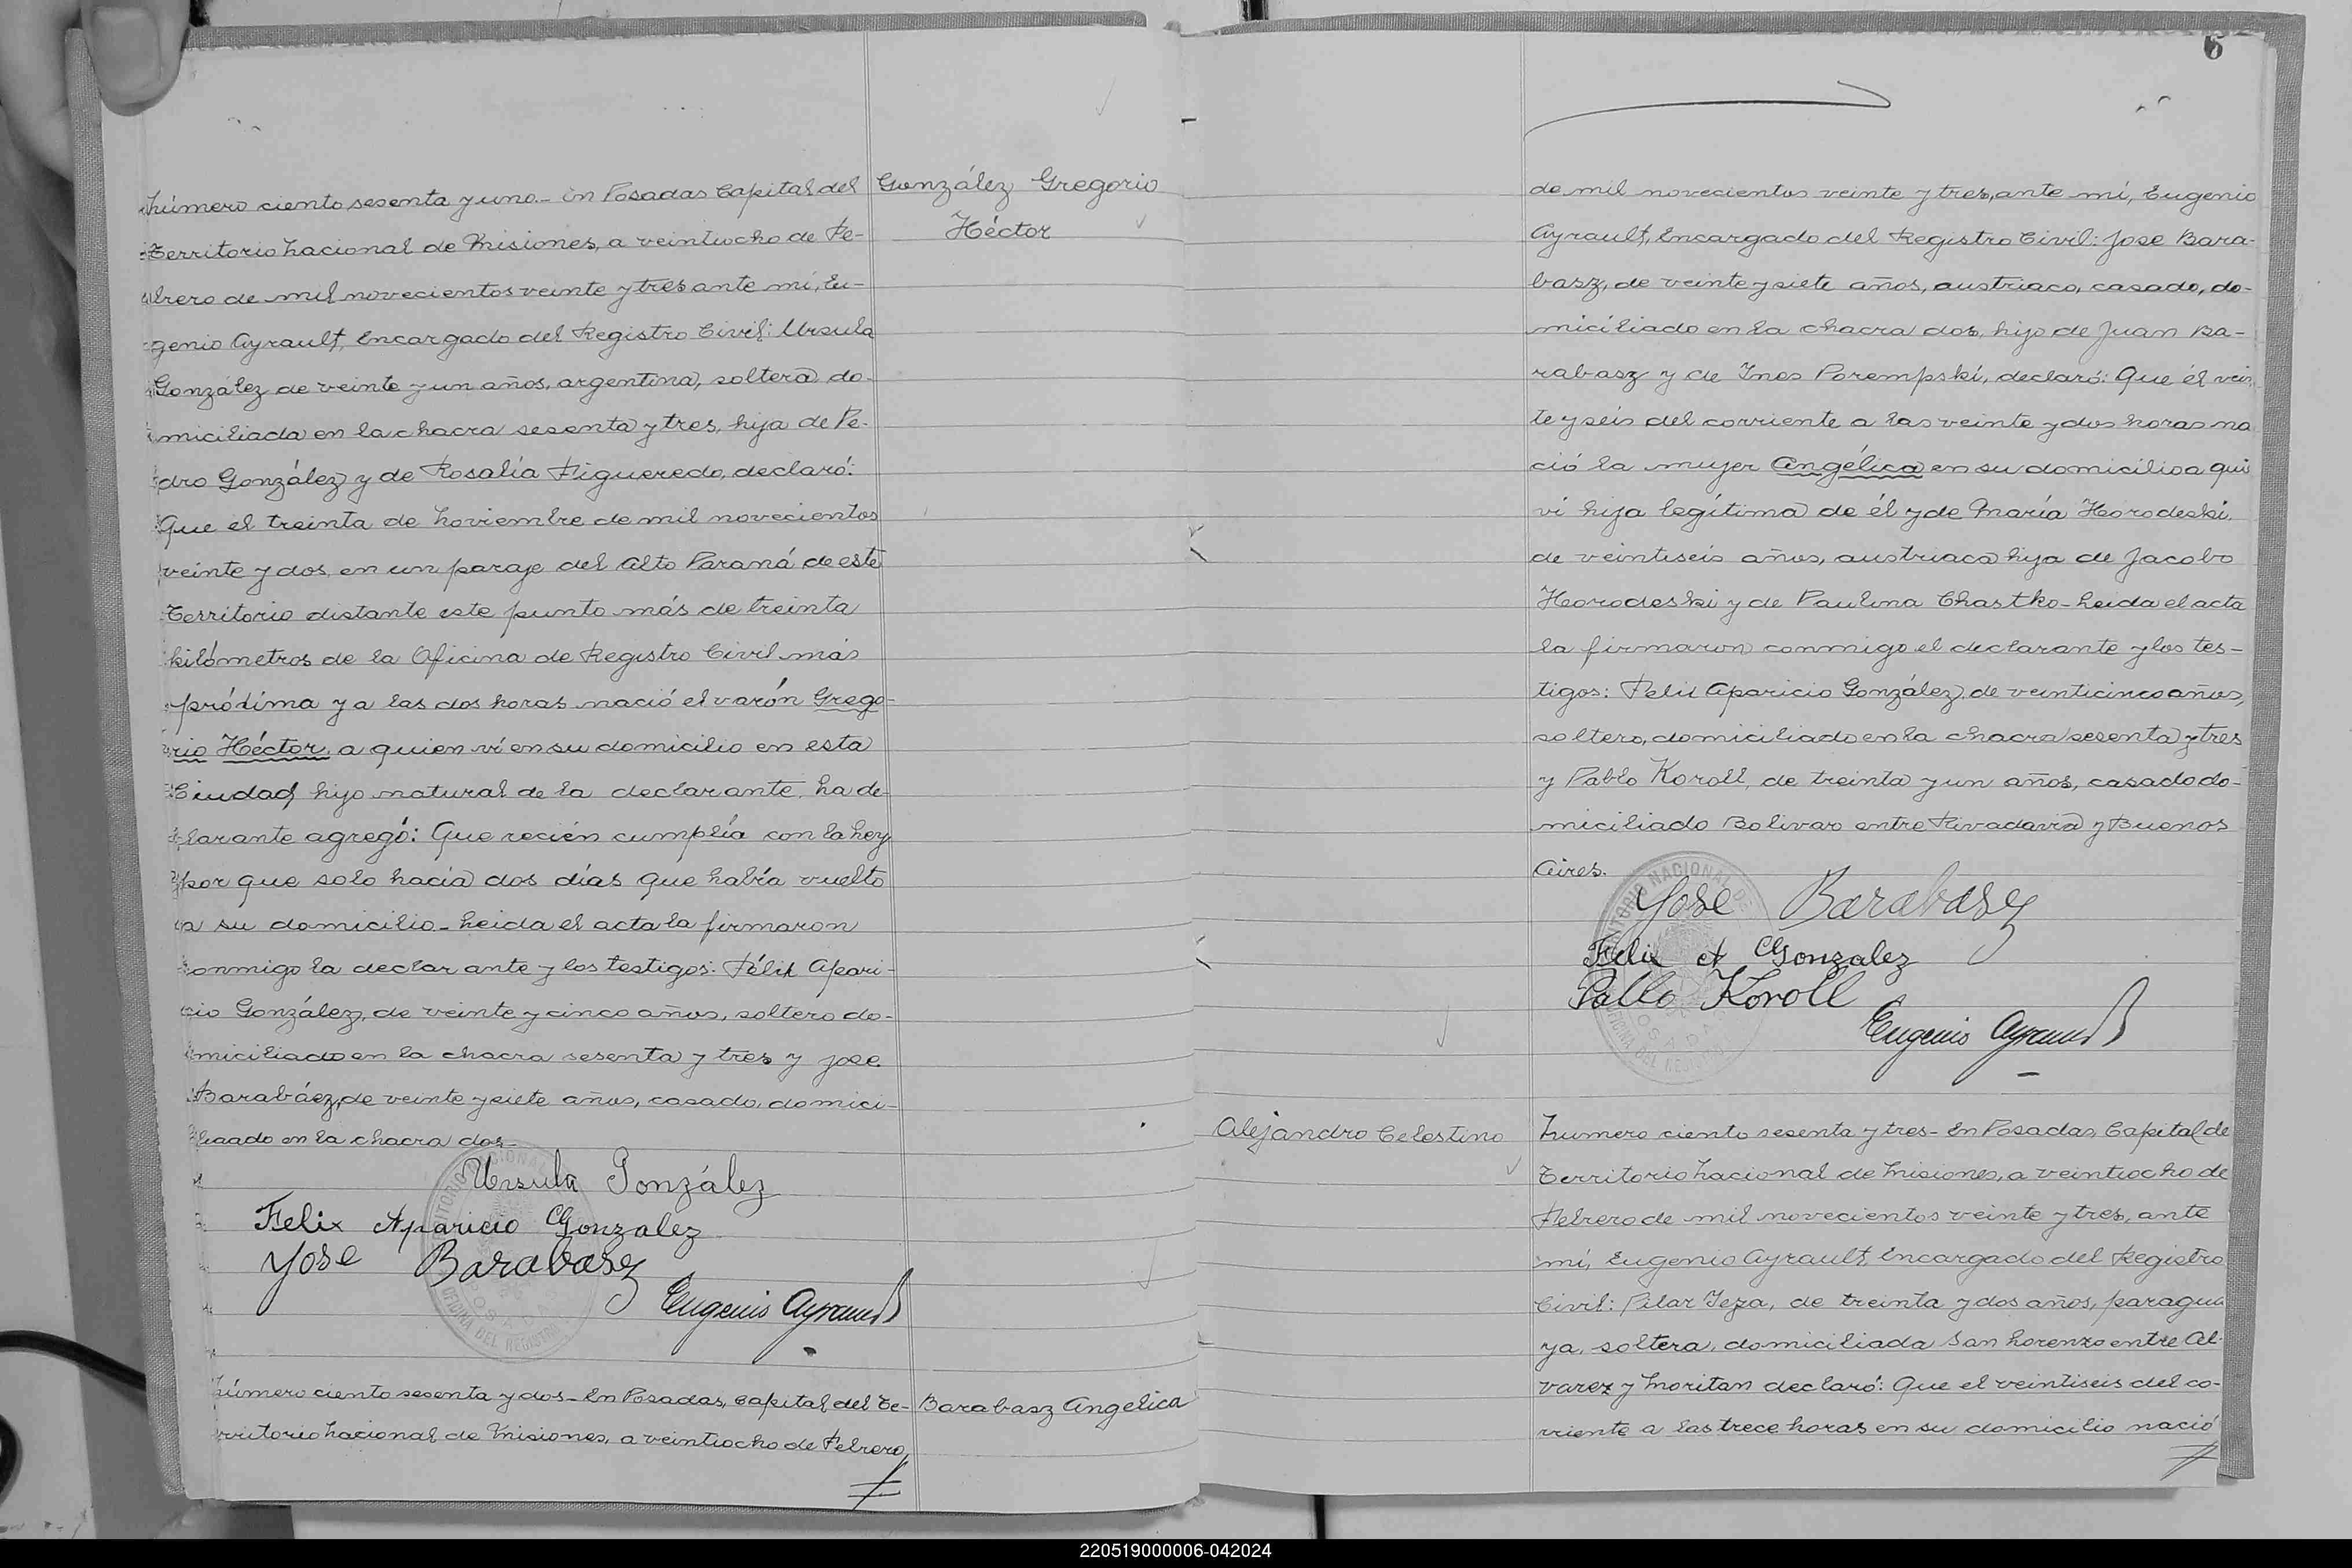 González Gregorio
Héctor
Número ciento sesenta y uno.- En Posadas Capital del
Territorio Nacional de Misiones, a veintiocho de Fe-
brero de mil novecientos veinte y tres ante mí, Eu-
genio Ayrault, Encargado del Registro Civil: Ursula
González de veinte y un años, argentina, soltera, do-
miciliada en la chacra sesenta y tres, hija de Pe-
dro González y de Rosalía Figueredo, declaró:
Que el treinta de Noviembre de mil novecientos
veinte y dos, en un paraje del Alto Paraná de este
Territorio distante este punto más de treinta
kilómetros de la Oficina de Registro Civil más
próxima y a las dos horas nació el varón Grego-
rio Héctor, a quien ví en su domicilio en esta
Ciudad, hijo natural de la declarante. La de-
clarante agregó: Que recién cumplía con la Ley
por que solo hacía dos días que había vuelto
a su domicilio - Leida el acta la firmaron
conmigo la declarante y los testigos: Félix Apari-
cio González, de veinte y cinco años, soltero do-
miciliado en la chacra sesenta y tres y Jose
Barabáez, de veinte y siete años, casado, domici-
liado en la chacra dos-
Ursula González
Felix Aparicio Gonzalez
Jose Barabasz
Eugenio Ayrault
Barabasz Angelica
Número ciento sesenta y dos - En Posadas, Capital del Te-
rritorio Nacional de Misiones, a veintiocho de Febrero,
6
de mil novecientos veinte y tres, ante mí, Eugenio
Ayrault, Encargado del Registro Civil: Jose Bara-
basz, de veinte y siete años, austriaco, casado, do-
miciliado en la chacra dos, hijo de Juan Ba-
rabasz y de Ines Porempski, declaró: Que él vein
te y seis del corriente a las veinte y dos horas na
ció la mujer Angélica en su domicilio a qui
ví hija legítima de él y de María Horodeski,
de veintiseis años, austriaca hija de Jacobo
Horodeski y de Paulina Chastko - Leida el acta
la firmaron conmigo el declarante y los tes-
tigos: Felix Aparicio González, de veinticinco años,
soltero, domiciliado en la chacra sesenta y tres
y Pablo Koroll, de treinta y un años, casado do-
miciliado Bolivar entre Rivadavia y Buenos
Aires.
Jose Barabasz
Felix A Gonzalez
Pablo Koroll
Eugenio Ayrault
Alejandro Celestino
Número ciento sesenta y tres - En Posadas, Capital de
Territorio Nacional de Misiones, a veintiocho de
Febrero de mil novecientos veinte y tres, ante
mí, Eugenio Ayrault, Encargado del Registro
Civil: Pilar Teza, de treinta y dos años, paragua
ya, soltera, domiciliada San Lorenzo entre Al-
varez y Moritan declaró: Que el veintiseis del co-
rriente a las trece horas en su domicilio nació
220519000006-042024